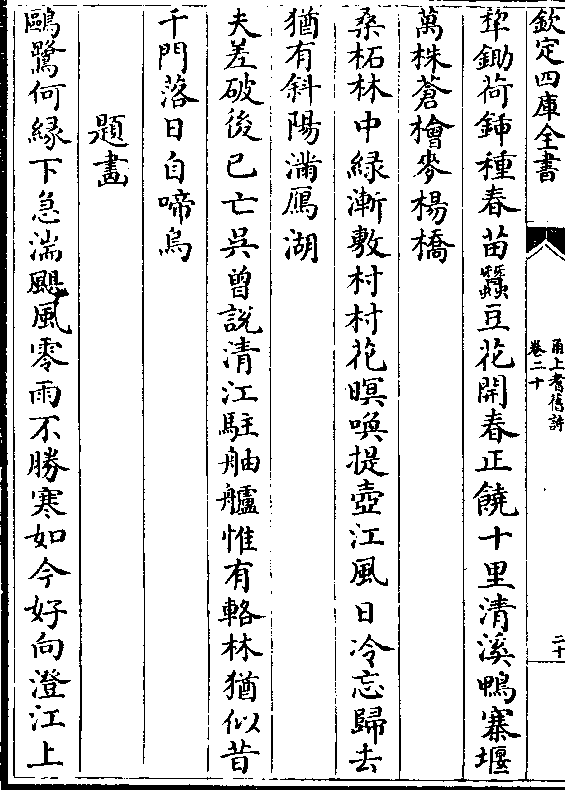 欽定四庫全書
甬上耆舊詩
卷二十
二十
犂鋤荷鍤種春苗蠶豆花開春正饒十里清溪鴨寨堰
萬株蒼檜麥楊橋
桑柘林中綠漸敷村村花暝喚提壺江風日冷忘歸去
猶有斜陽滿鴈湖
夫差破後已亡吳曾說清江駐舳艫惟有輅林猶似昔
千門落日自啼烏
題畫
鷗鷺何緣下急湍颶風零雨不勝寒如今好向澄江上